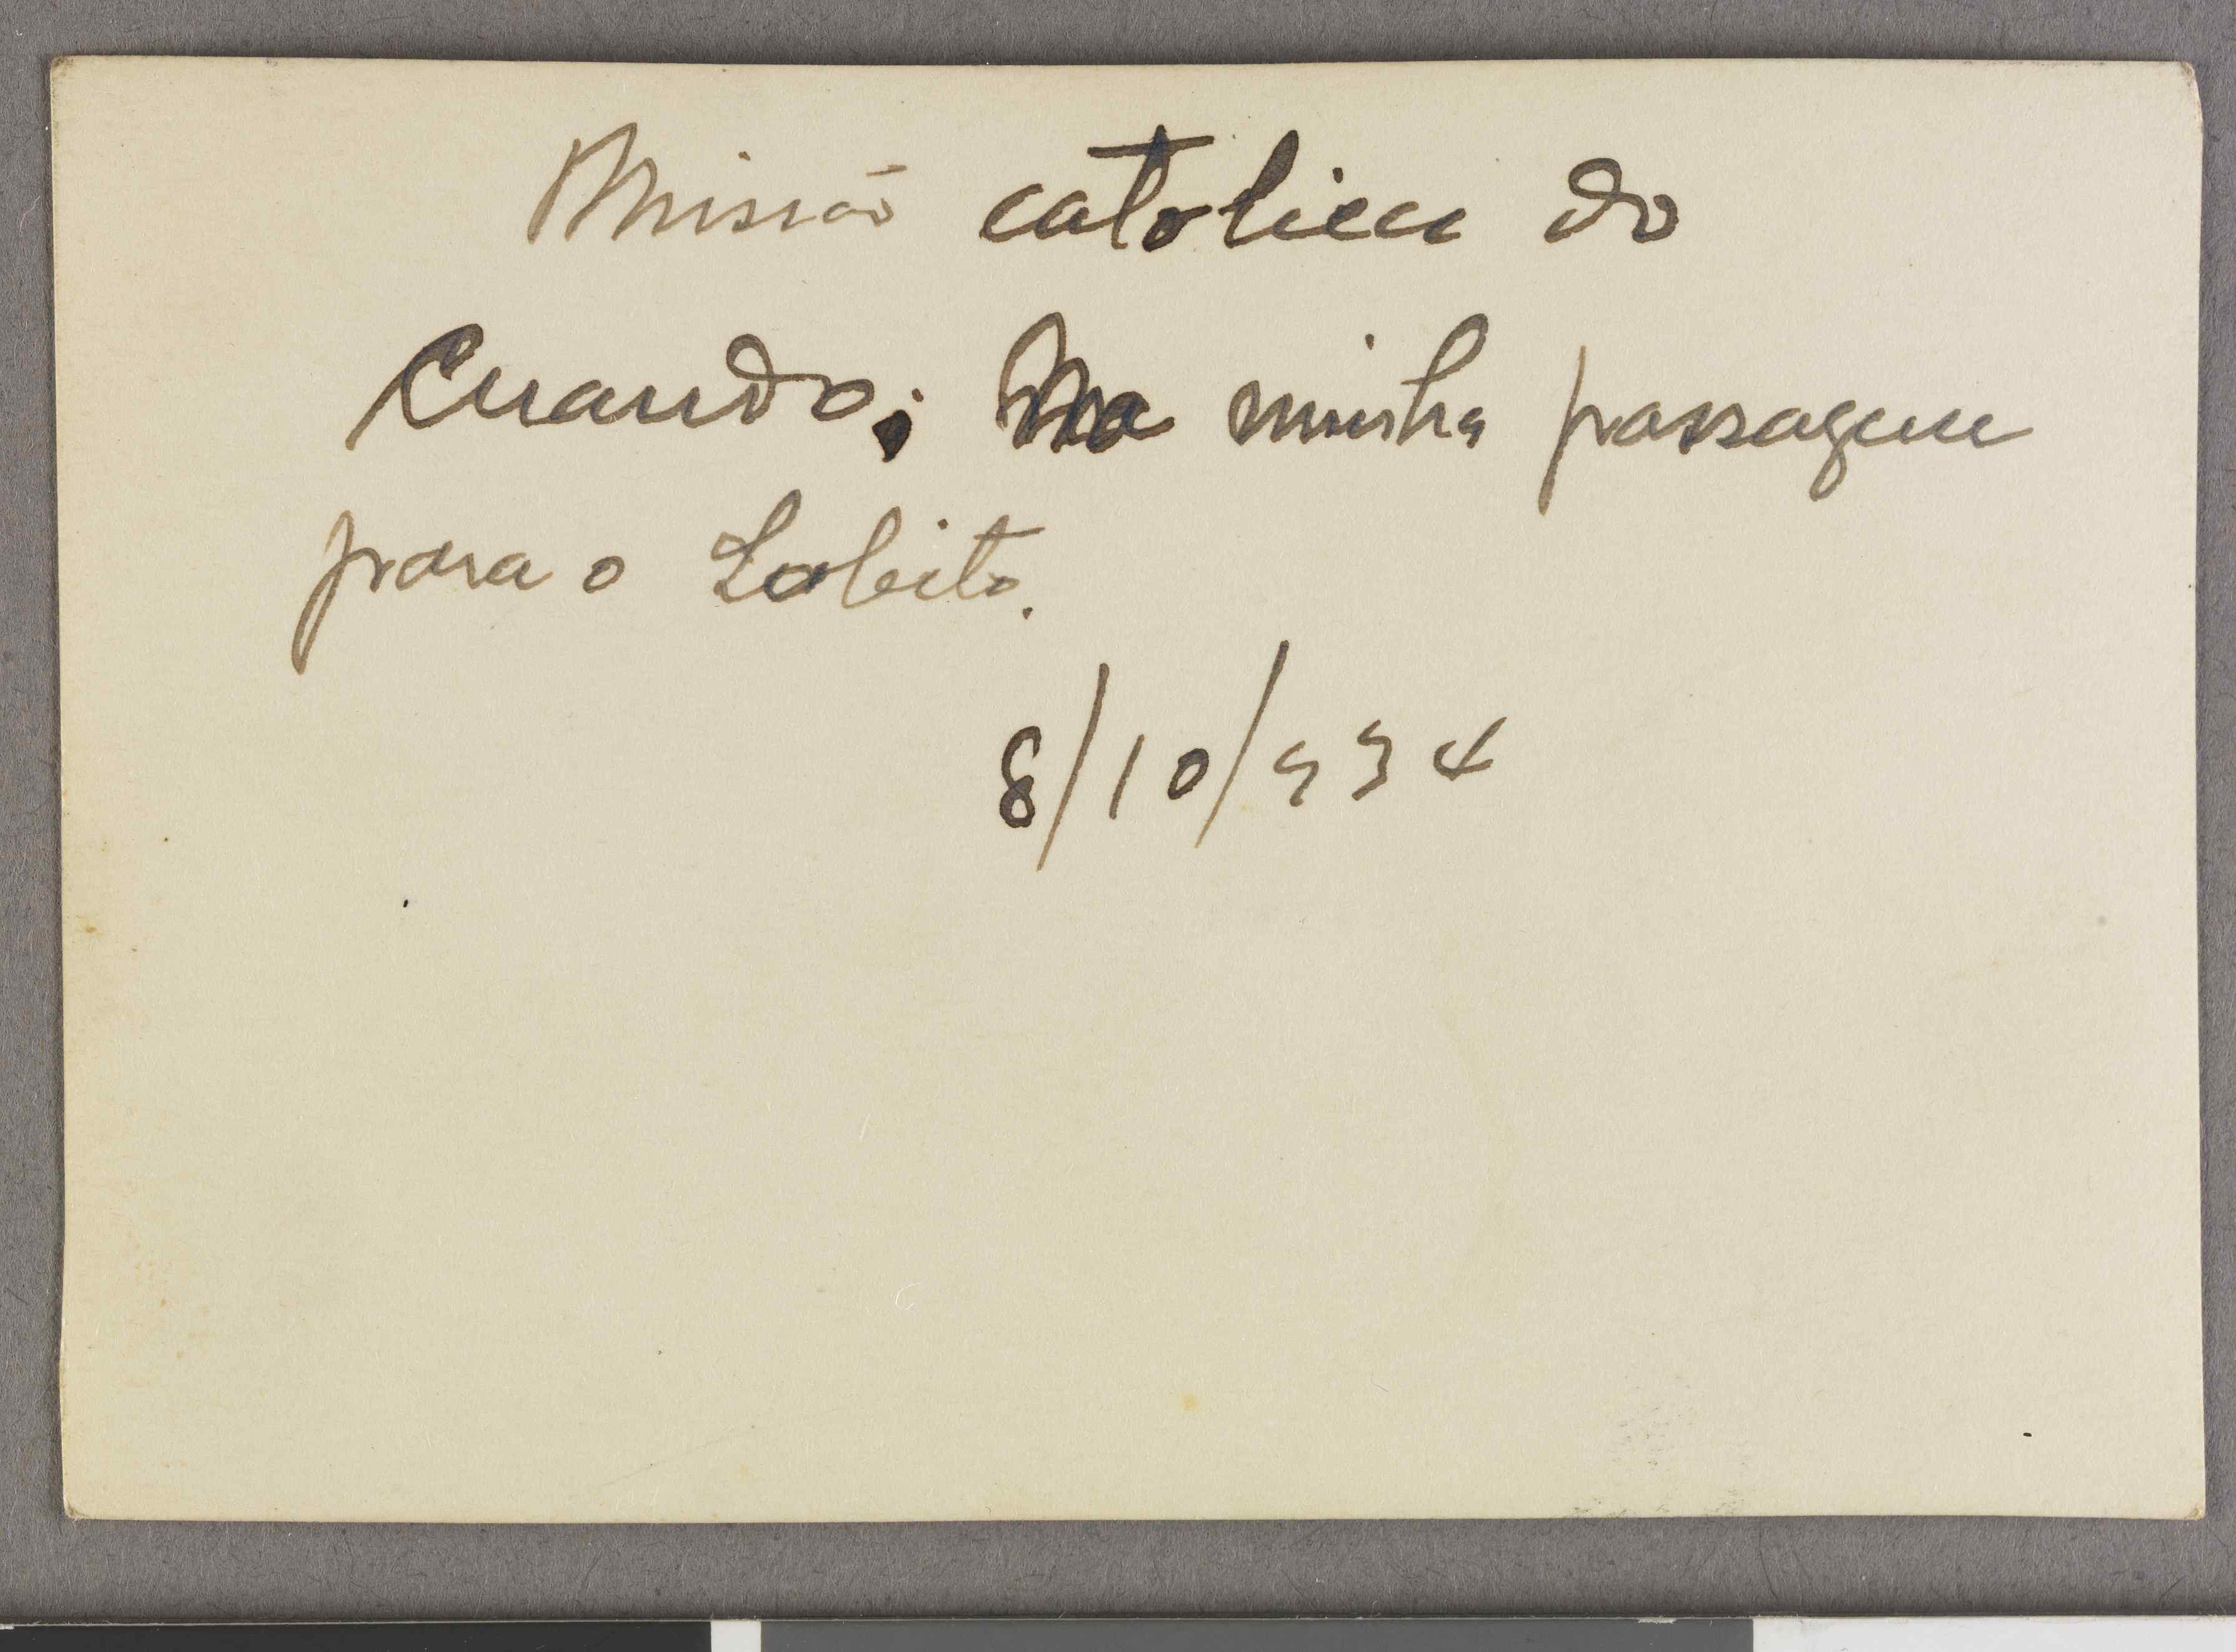 Missão catolica do
Cuando; Na minha passagem
para o Lobito.
8/10/934